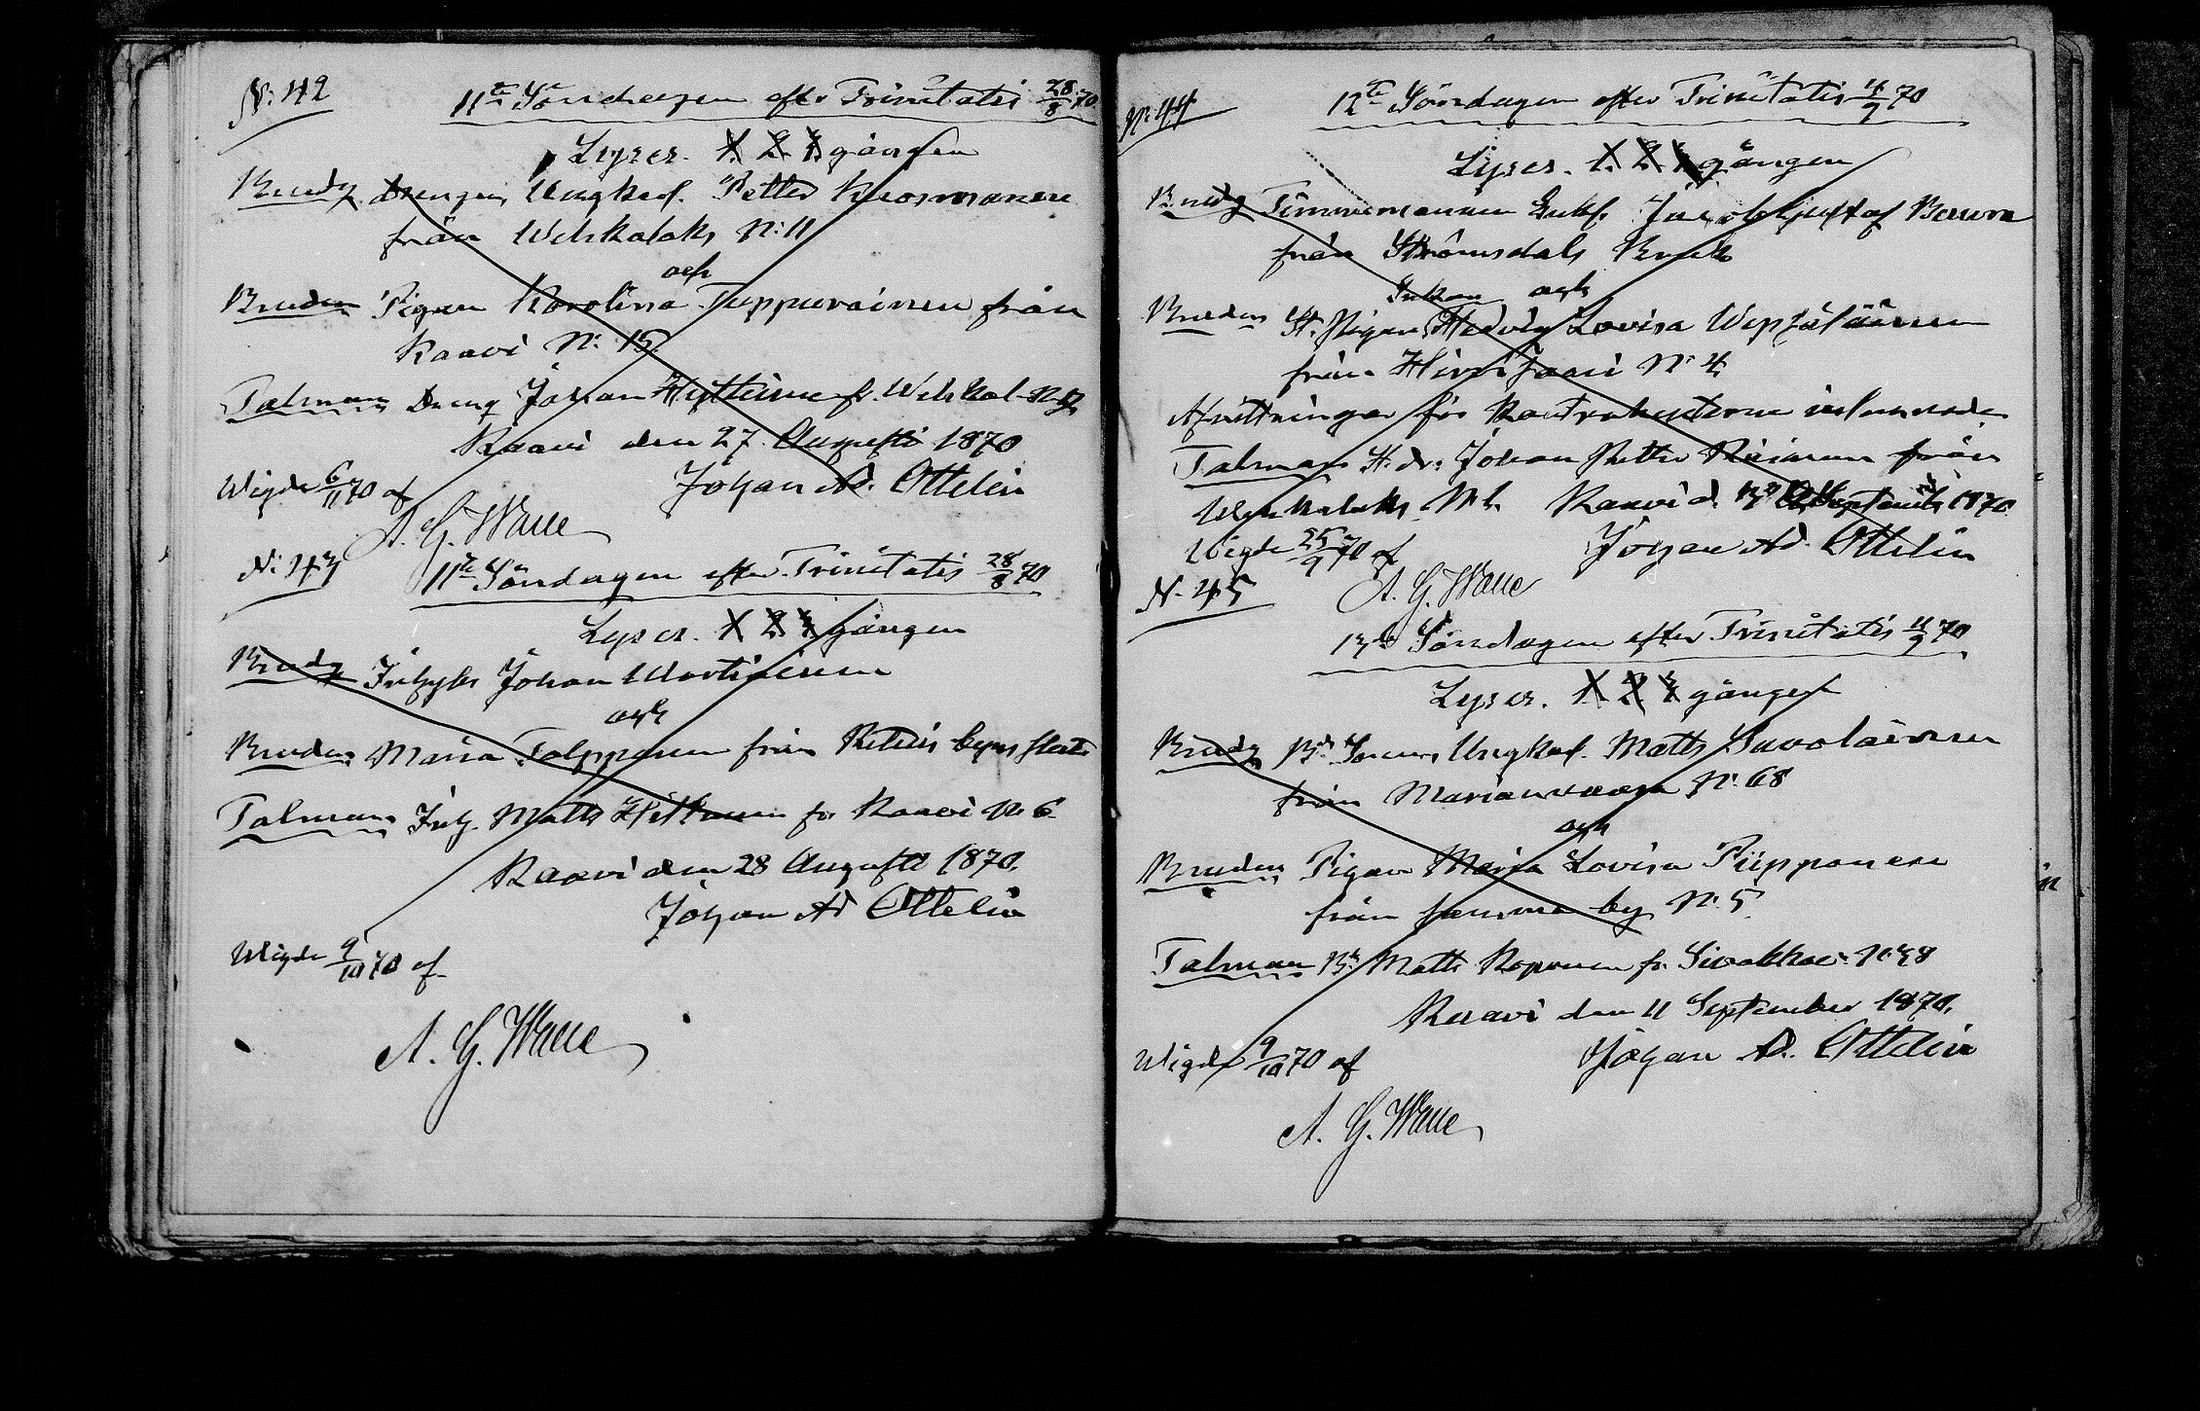 N: 42
11te Söndagen efter Trinitatis 28/8 70
Lyses. 1. 2. 3. gången
Brudg. Drengen, Ungkarl. Petter Kuosmanen
från Welskalaks N: 11
och
Bruden Pigan Karolina Tuppurainen från
Kaavi N: 15
Talman Dreng Johan Hyttinen fr. Welskal. N: 9
Kaavi den 27 Augusti 1870
Johan Ad. Ottelin
Wigde 6/11 70 af
A. G. Walle
N: 43
11te Söndagen efter Trinitatis 28/8 70
Lyses. 1 2 3 gången
Brudg Inhyses Johan Martikainen
och
Bruden Maria Tolpponen från
Talman Inh. Matts fr. Kaavi N: 6
Kaavi den 28 Augusti 1870.
Johan Ad Ottelin
Wigde 9/10 70 af
A. G. Walle
N: 44
12te Söndagen efter Trinitatis 4/9 70
Lyses. 1. 2 3 gången
Brudg Timmermannen Enkl. Jacob
från Strömsdals Bruk
Enkan och
Bruden Hedvig Lovisa Wepsäläinen
från Hirvijärvi N: 4
för Kontrahenterne inlemnade
Talman Johan Petter från
N: 1. Kaavi d. September 1870
Johan Ad. Ottelin
Wigde 25/9 70 af
A. G. Walle
N: 45
13de Söndagen efter Trinitatis 11/9 70
Lyses. 1 2 3 gången
Brudg Bd Sonen, Ungkarl. Matts Savolainen
från Marianvaara N: 68
och
Bruden Pigan Maria Lovisa Piipponen
från samma by N: 5
Talman Bd Matts Kopponen fr. N: 38
Kaavi den 11 September 1870.
Johan Ad. Ottelin
Wigde 9/10 70 af
A. G. Walle